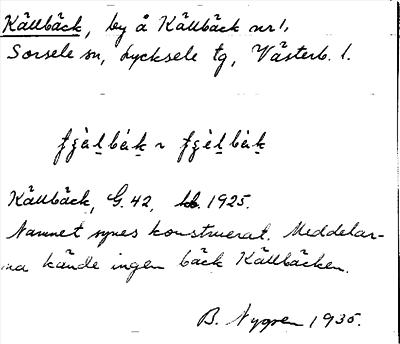 Källbäck, by å Källbäck nr 1,
Sorsele sn, Lycksele tg, Västerb. l.
Källbäck, G. 42, 1925.
Namnet synes konstruerat. Meddelar-
na kände ingen bäck Källbäcken.
B. Nygren 1935.